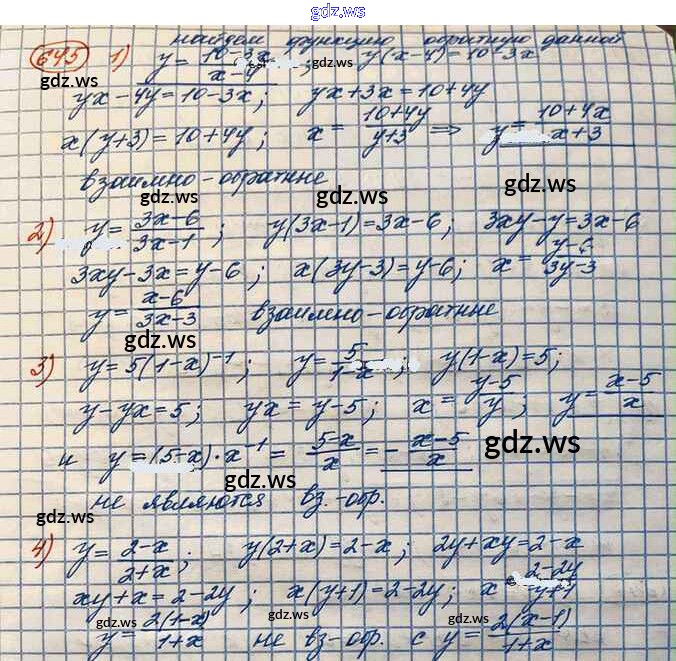 gdz.ws
найдем функцию обратную данной
645 1) y = 10-3x / x-4 ; y(x-4) = 10-3x
gdz.ws gdz.ws
yx-4y = 10-3x; yx+3x = 10+4y
x(y+3) = 10+4y; x = 10+4y / y+3 => y = 10+4x / x+3
gdz.ws
взаимно-обратные
gdz.ws gdz.ws gdz.ws
2) y = 3x-6 / 3x-1 ; y(3x-1) = 3x-6; 3xy-y = 3x-6
3xy-3x = y-6; x(3y-3) = y-6; x = y-6 / 3y-3
y = x-6 / 3x-3 взаимно-обратные
gdz.ws
3) y = 5(1-x)⁻¹; y = 5 / 1-x ; y(1-x) = 5;
y-yx = 5; yx = y-5; x = y-5 / y ; y = x-5 / x
и y = (5-x)·x⁻¹ = 5-x / x = - x-5 / x
gdz.ws gdz.ws
не являются вз.-обр.
gdz.ws
4) y = 2-x / 2+x ; y(2+x) = 2-x; 2y+xy = 2-x
xy+x = 2-2y; x(y+1) = 2-2y; x = 2-2y / y+1
gdz.ws gdz.ws gdz.ws
y = 2(1-x) / 1+x не вз-обр. с y = 2(x-1) / 1+x